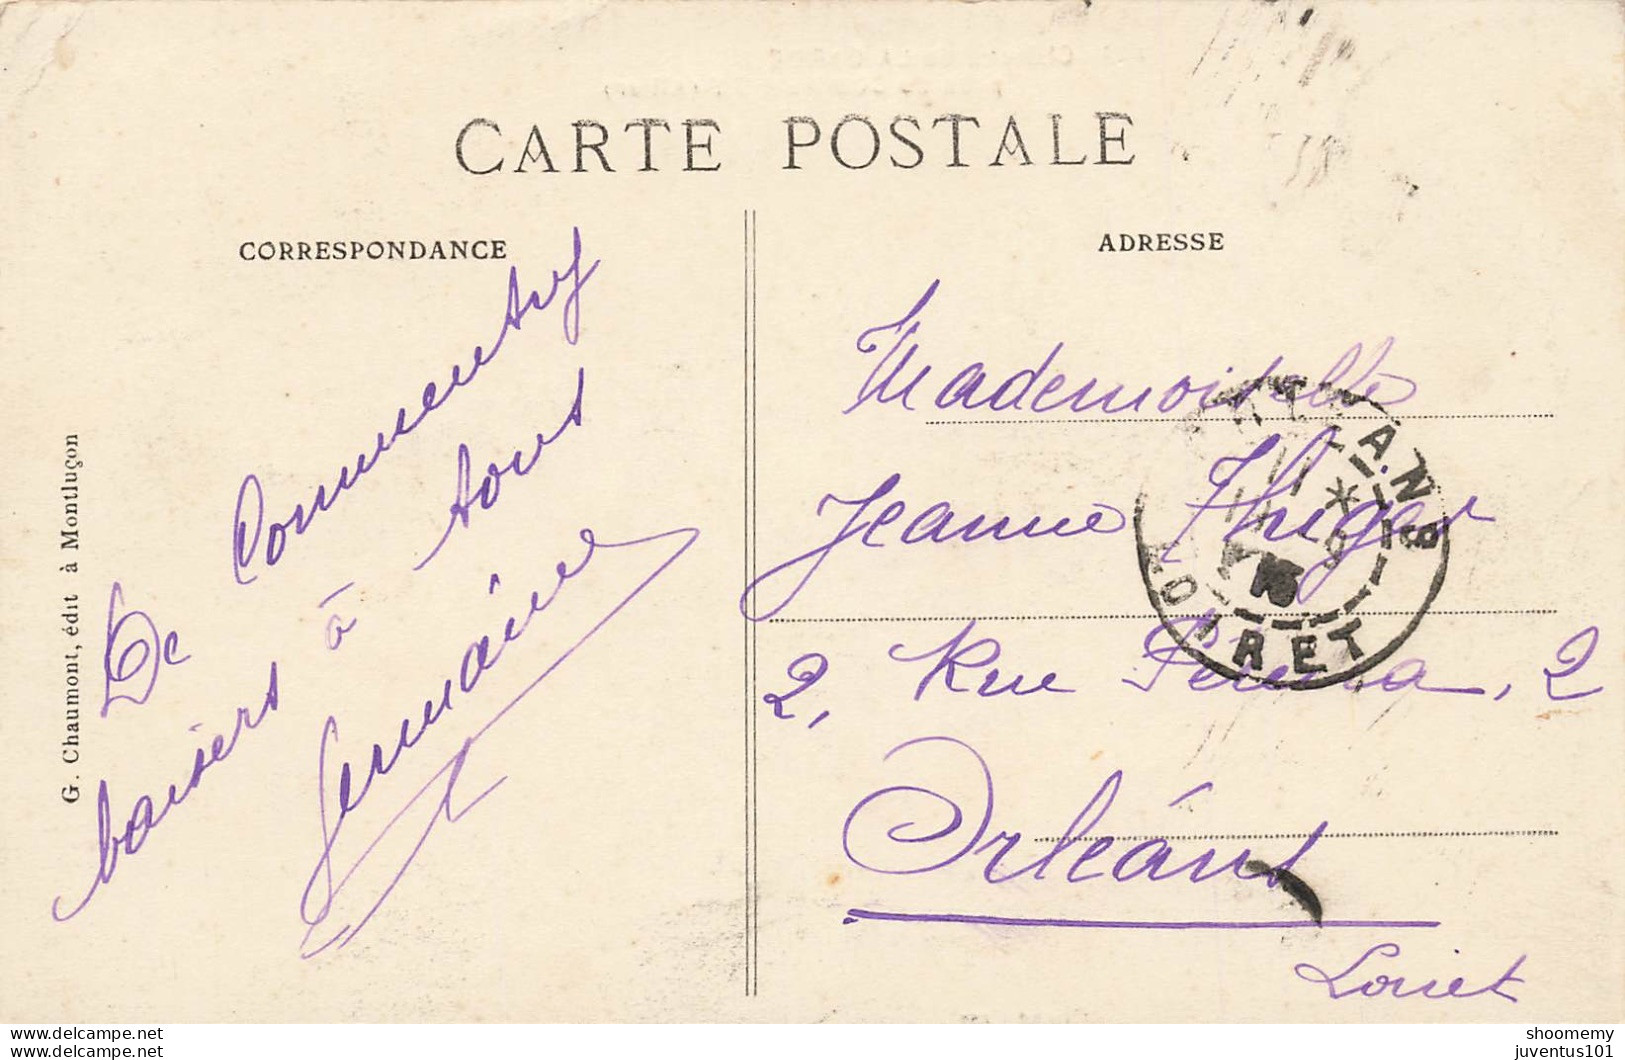 CARTE POSTALE
CORRESPONDANCE
De Commentry
baisers à tous
Germaine
G. Chaumont, édit à Montluçon
ADRESSE
Mademoiselle
Jeanne Thiger
2, Rue Pereira, 2
Orléans
Loiret
LOIRET
www.delcampe.net
www.delcampe.net
shoomemy
juventus101